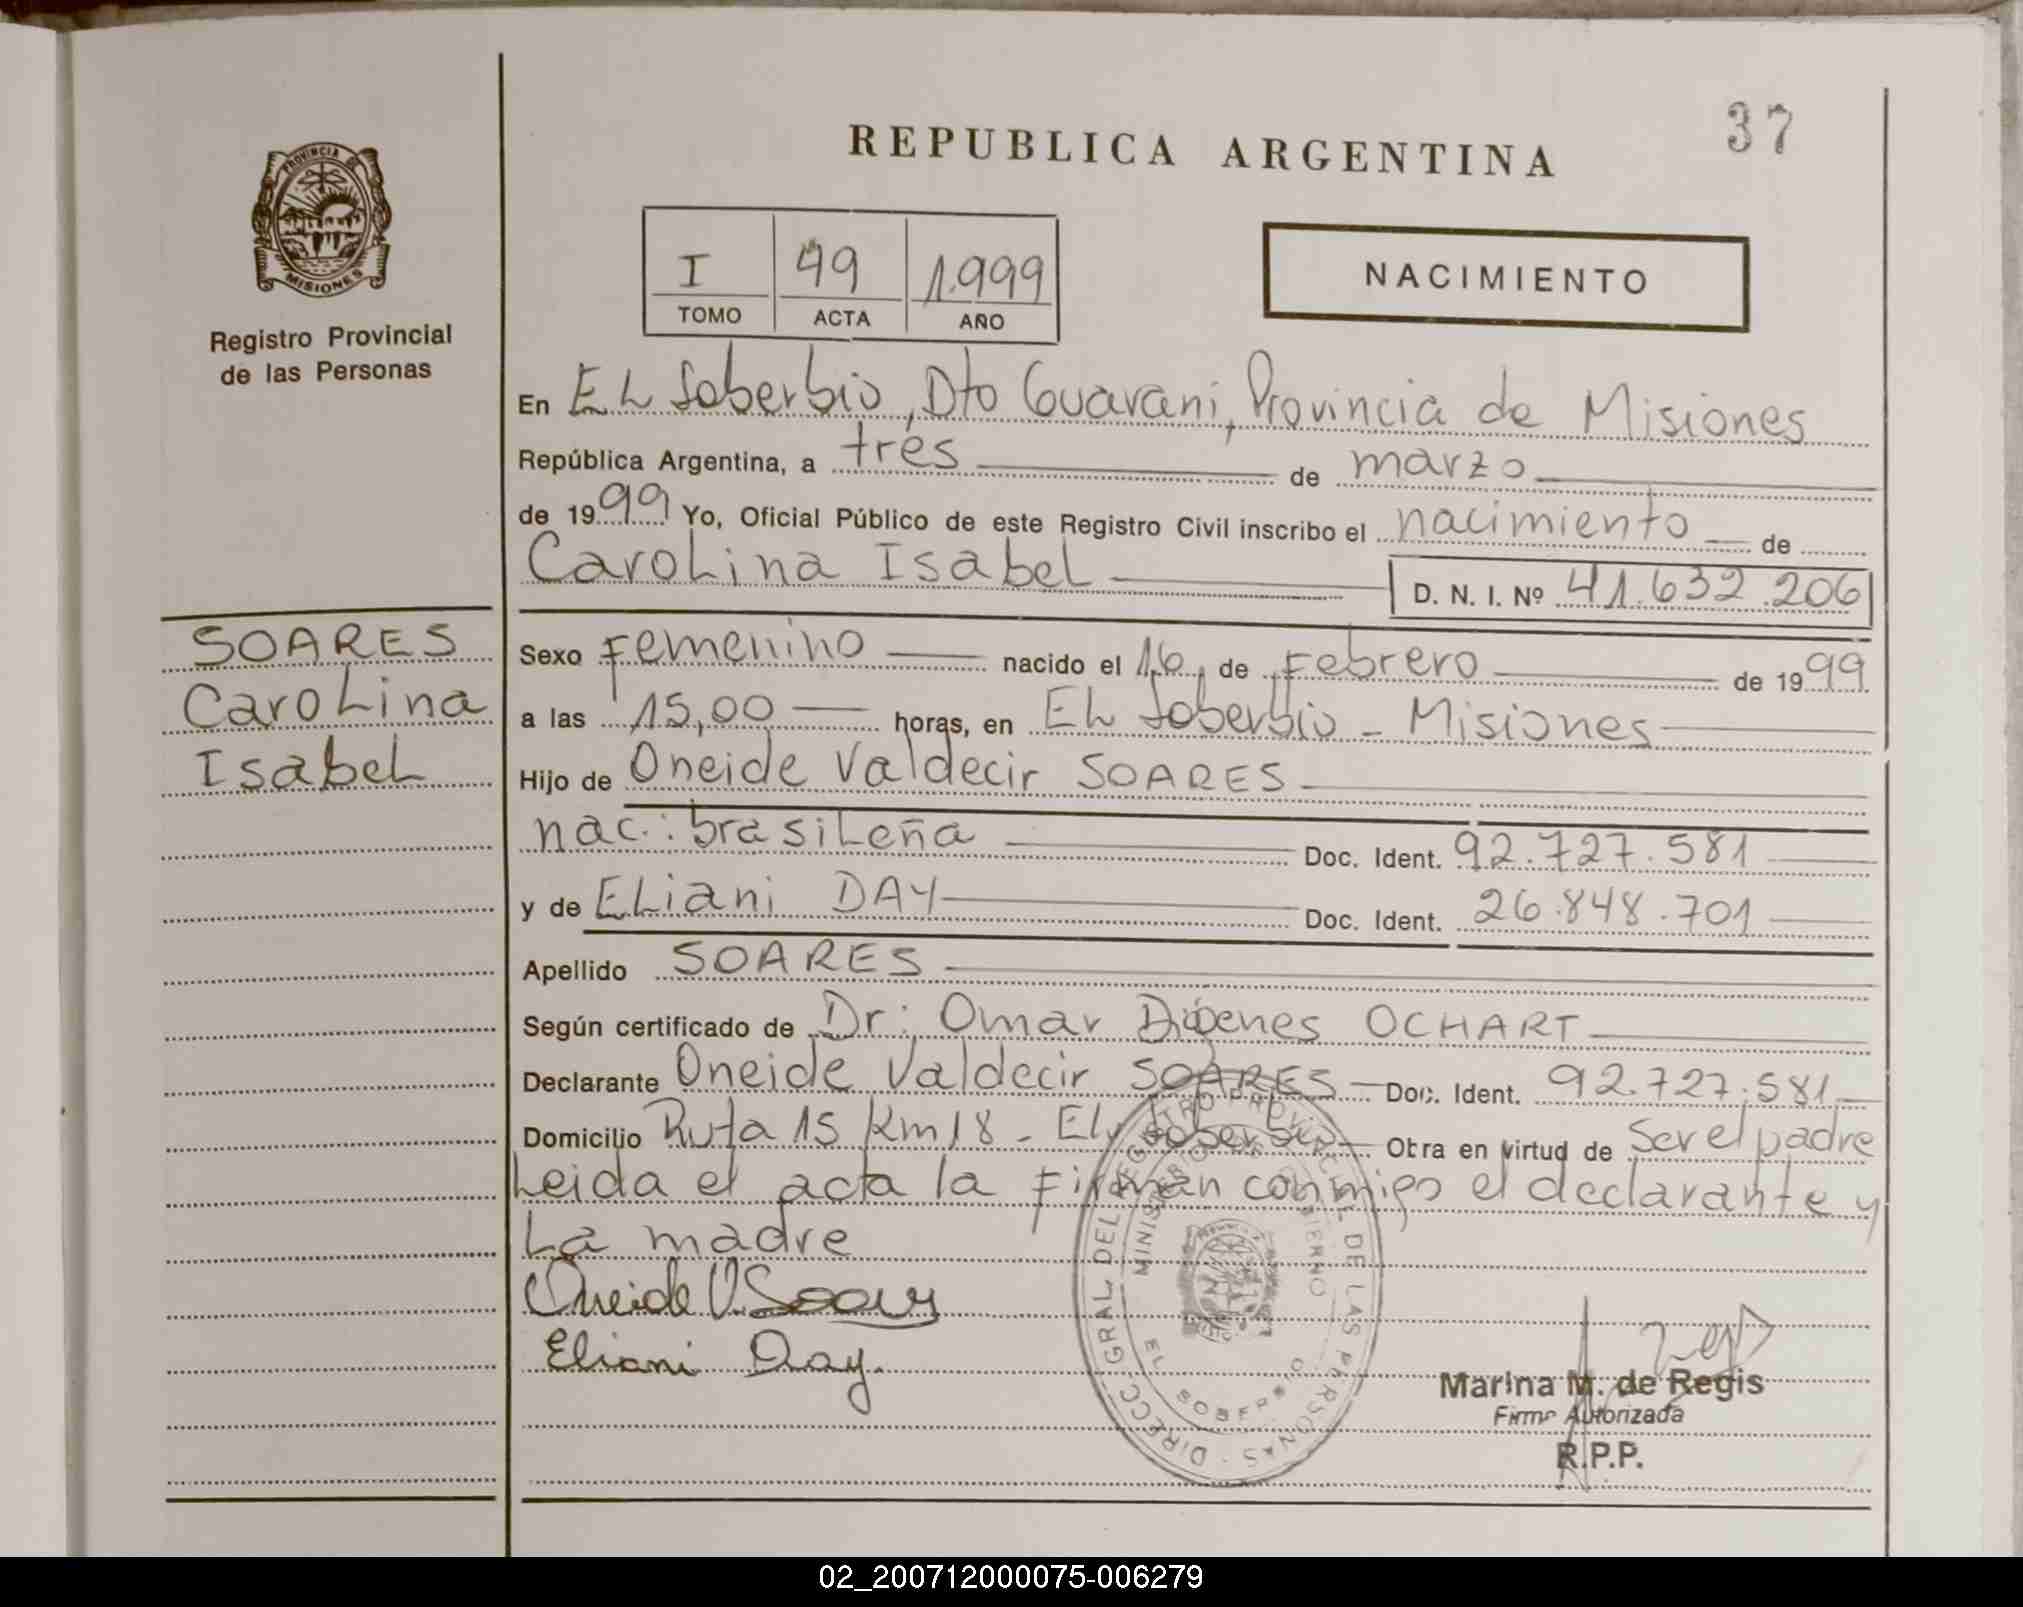 37
REPUBLICA ARGENTINA
PROVINCIA DE
MISIONES
Registro Provincial
de las Personas
I 49 1.999
TOMO ACTA AÑO
NACIMIENTO
En EL Soberbio, Dto Guarani, Provincia de Misiones
República Argentina, a tres de marzo
de 1999 Yo, Oficial Público de este Registro Civil inscribo el nacimiento de
Carolina Isabel D. N. I. Nº 41.632.206
SOARES
Carolina
Isabel
Sexo Femenino nacido el 16 de Febrero de 1999
a las 15,00 horas, en EL Soberbio - Misiones
Hijo de Oneide Valdecir SOARES
nac.: brasileña Doc. Ident. 92.727.581
y de Eliani DAY Doc. Ident. 26.848.701
Apellido SOARES
Según certificado de Dr: Omar OCHART
Declarante Oneide Valdecir SOARES Doc. Ident. 92.727.581
Domicilio Ruta 15 Km 18 - El Soberbio Obra en virtud de Ser el padre
Leida el acta la Firman conmigo el declarante y
La madre
Oneide V. Soares
Eliani Day.
DIRECC. GRAL DEL REGISTRO PROVINCIAL DE LAS PERSONAS
MINISTERIO DE GOBIERNO
EL SOBERBIO
Marina M. de Regis
Firma Autorizada
R.P.P.
02_200712000075-006279